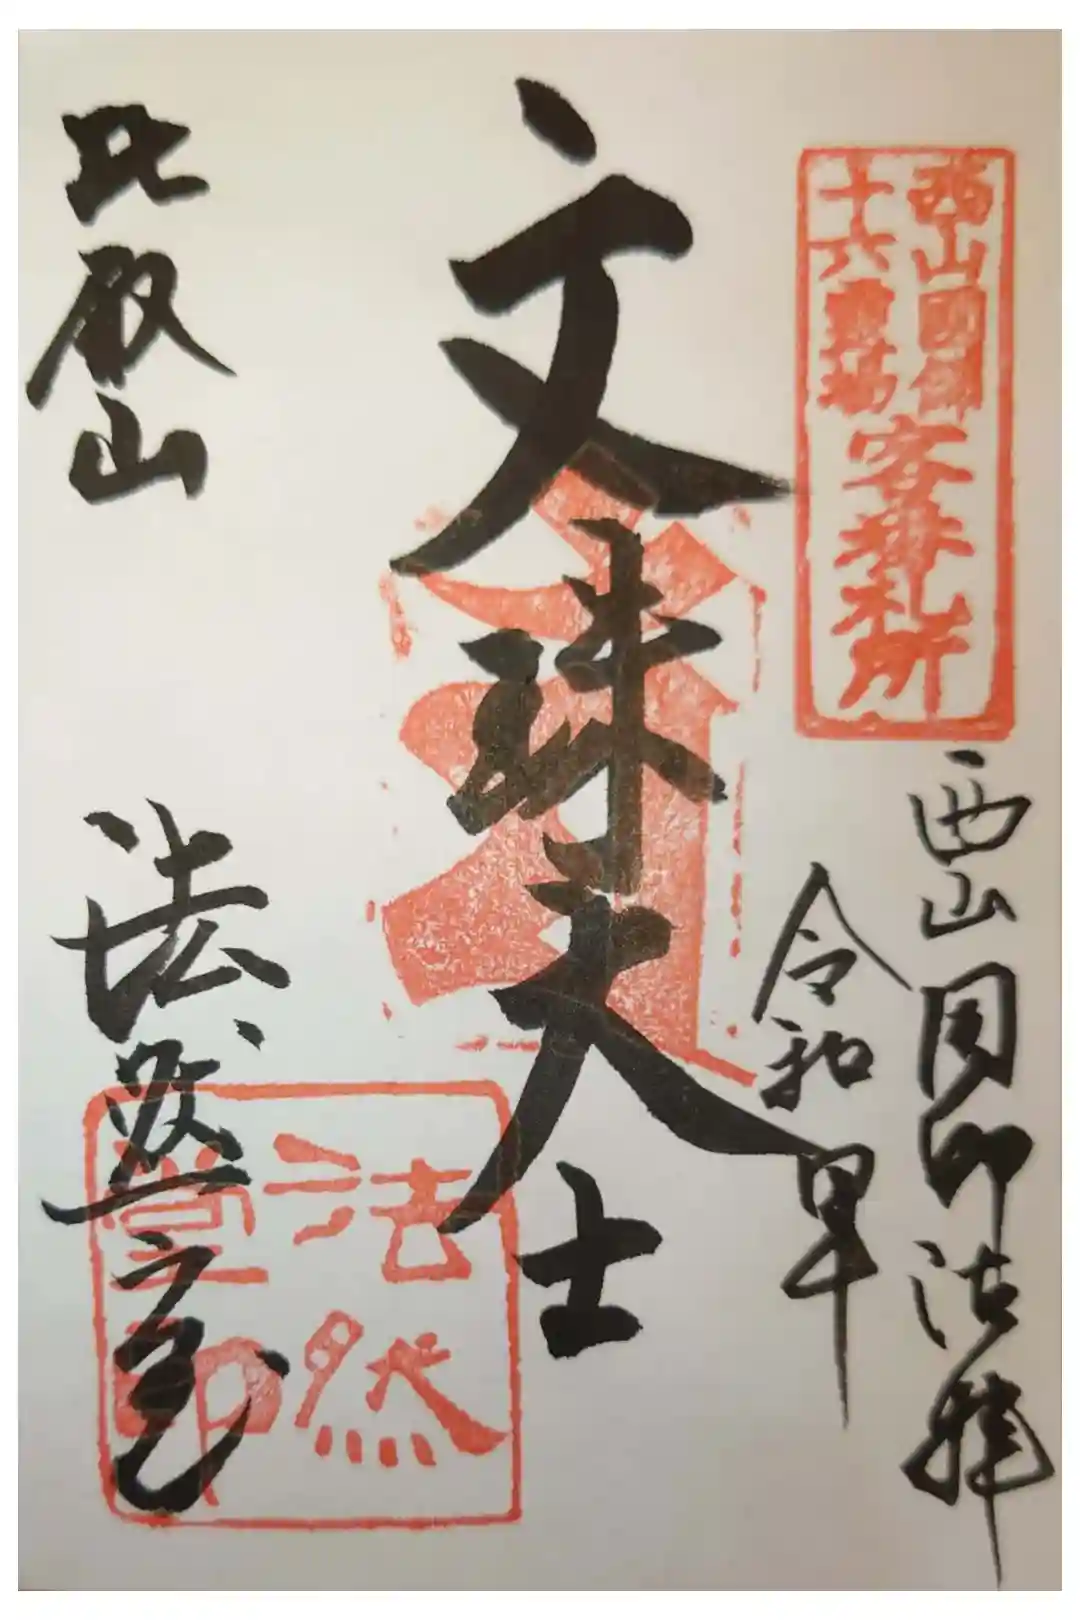 西山國師
十六霊場
客番札所
西山国師
令和
文殊大士
比叡山
法然堂
法然
堂印